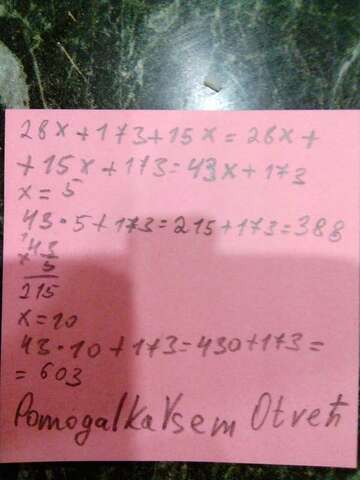 28x+173+15x=28x+
+15x+173=43x+173
x=5
43·5+173=215+173=388
43
×5
215
x=10
43·10+173=430+173=
=603
PomogalkaVsem Otveħ